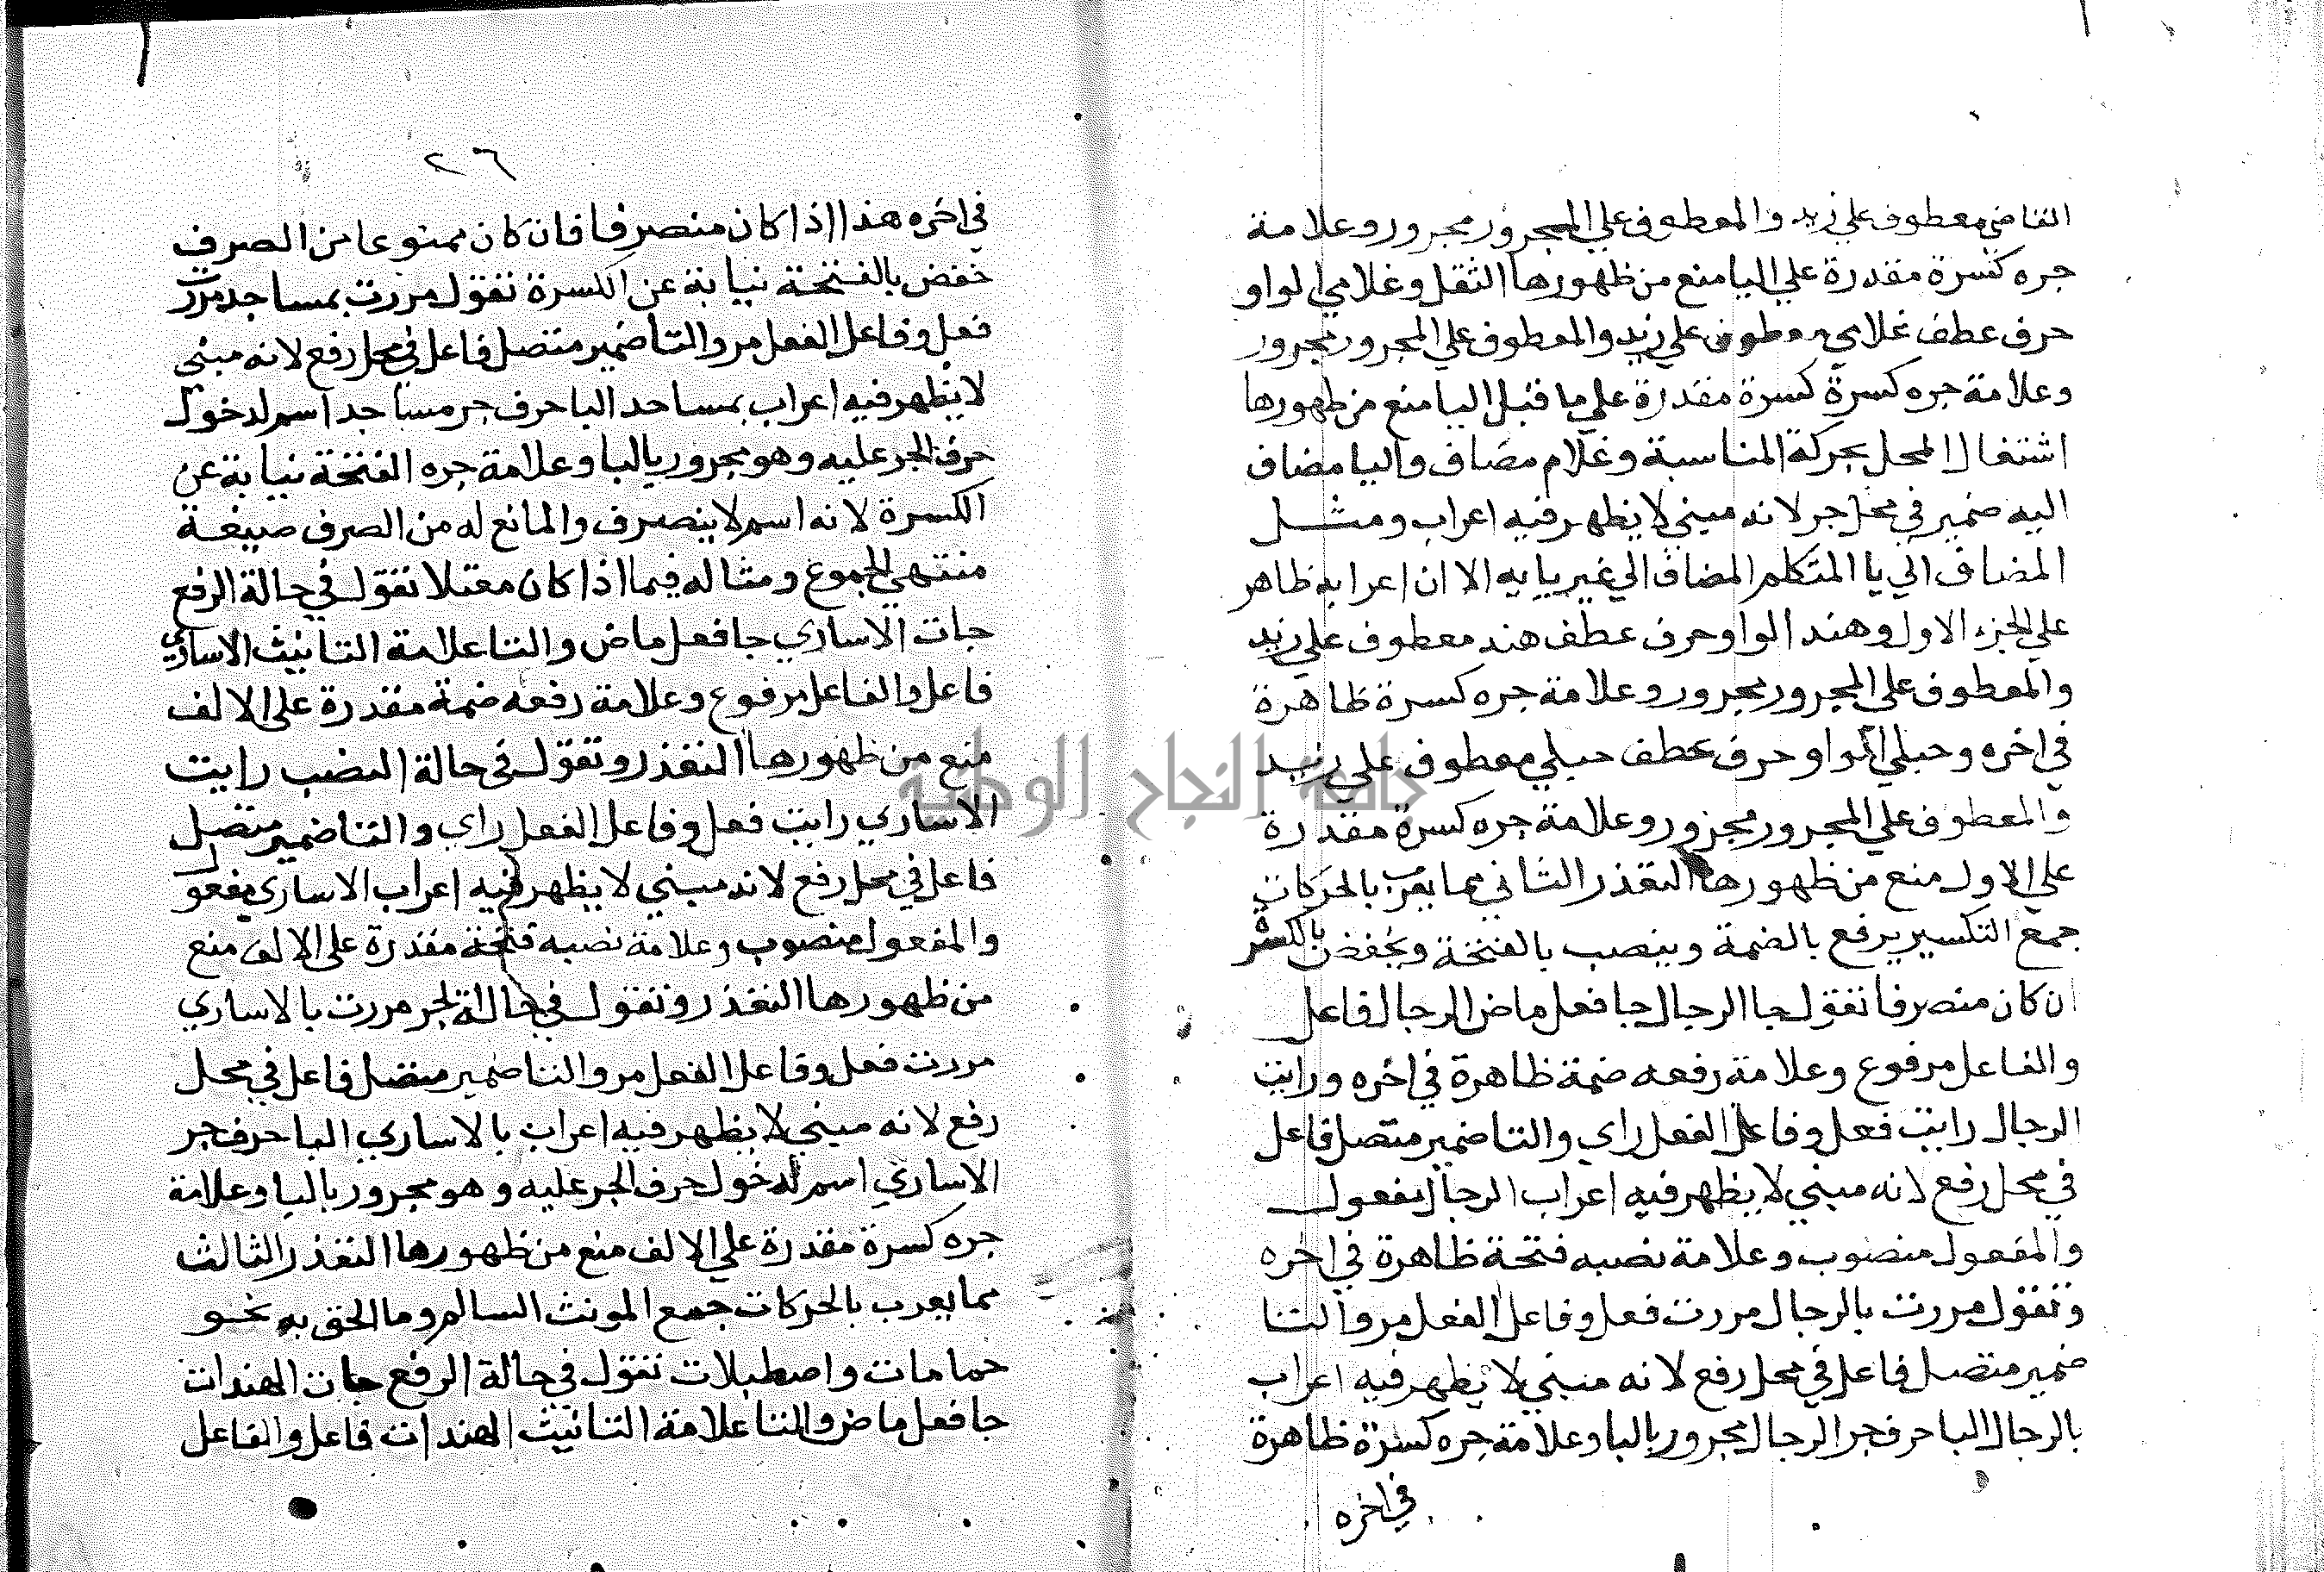 القاضي معطوف علي زيد والمعطوف علي المجرور مجرور وعلامة
جره كسرة مقدرة علي اليا منع من ظهورها الثقل وغلامي الواو
حرف عطف غلامي معطوف علي زيد والمعطوف علي المجرور مجرور
وعلامة جره كسرة كسرة مقدرة علي ما قبل اليا منع من ظهورها
اشتغال المحل بحركة المناسبة وغلام مضاف واليا مضاف
اليه ضمير في محل جر لانه مبني لا يظهر فيه اعراب ومثل
المضاف الي يا المتكلم المضاف الي غير يايه الا ان اعرابه ظاهر
علي الجزء الاول وهند الواو حرف عطف هند معطوف علي زيد
والمعطوف علي المجرور مجرور وعلامة جره كسرة ظاهرة
في اخره وحبلي الواو حرف عطف حبلي معطوف علي زيد
والمعطوف علي المجرور مجرور وعلامة جره كسرة مقدرة
علي الاول منع من ظهورها التعذر الثاني مما يعرب بالحركات
جمع التكسير يرفع بالضمة وينصب بالفتحة ويخفض بالكسر
ان كان منصرفا تقول جا الرجال جا فعل ماض الرجال فاعل
والفاعل مرفوع وعلامة رفعه ضمة ظاهرة في اخره ورايت
الرجال رايت فعل وفاعل الفعل راي والتا ضمير متصل فاعل
في محل رفع لانه مبني لا يظهر فيه اعراب الرجال مفعول
والمفعول منصوب وعلامة نصبه فتحة ظاهرة في اخره
وتقول مررت بالرجال مررت فعل وفاعل الفعل مر والتا
ضمير متصل فاعل في محل رفع لانه مبني لا يظهر فيه اعراب
بالرجال البا حرف جر الرجال مجرور بالبا وعلامة جره كسرة ظاهرة
في اخره
٢٦
في اخره هذا اذا كان منصرفا فان كان ممنوعا من الصرف
خفض بالفتحة نيابة عن الكسرة تقول مررت بمساجد مررت
فعل وفاعل الفعل مر والتا ضمير متصل فاعل في محل رفع لانه مبني
لا يظهر فيه اعراب بمساجد البا حرف جر مساجد اسم لدخول
حرف الجر عليه وهو مجرور بالبا وعلامة جره الفتحة نيابة عن
الكسرة لانه اسم لا ينصرف والمانع له من الصرف صيغة
منتهي الجموع ومثاله فيما اذا كان معتلا تقول في حالة الرفع
جات الاساري جا فعل ماض والتا علامة التانيث الاساري
فاعل والفاعل مرفوع وعلامة رفعه ضمة مقدرة علي الالف
منع من ظهورها التعذر وتقول في حالة النصب رايت
الاساري رايت فعل وفاعل الفعل راي والتا ضمير متصل
فاعل في محل رفع لانه مبني لا يظهر فيه اعراب الاساري مفعول
والمفعول منصوب وعلامة نصبه فتحة مقدرة علي الالف منع
من ظهورها التعذر وتقول في حالة الجر مررت بالاساري
مررت فعل وفاعل الفعل مر والتا ضمير متصل فاعل في محل
رفع لانه مبني لا يظهر فيه اعراب بالاساري البا حرف جر
الاساري اسم لدخول حرف الجر عليه وهو مجرور بالبا وعلامة
جره كسرة مقدرة علي الالف منع من ظهورها التعذر الثالث
مما يعرب بالحركات جمع المونث السالم وما الحق به نحو
حمامات واصطبلات تقول في حالة الرفع جات الهندات
جا فعل ماض والتا علامة التانيث الهندات فاعل والفاعل
جامعة النجاح الوطنية